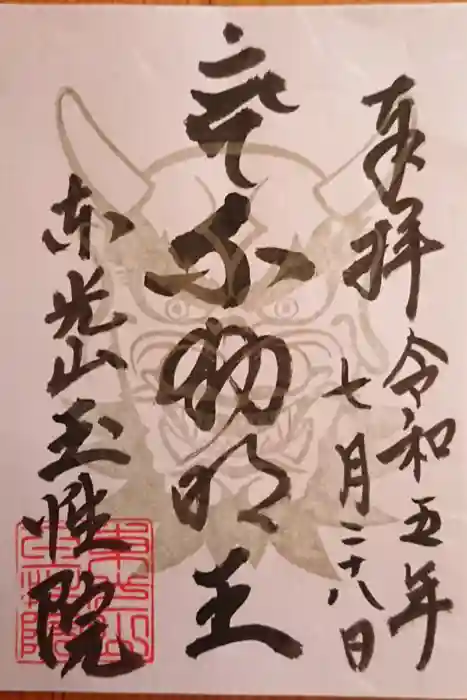 奉拝 令和五年
七月二十八日
不動明王
東光山 玉性院